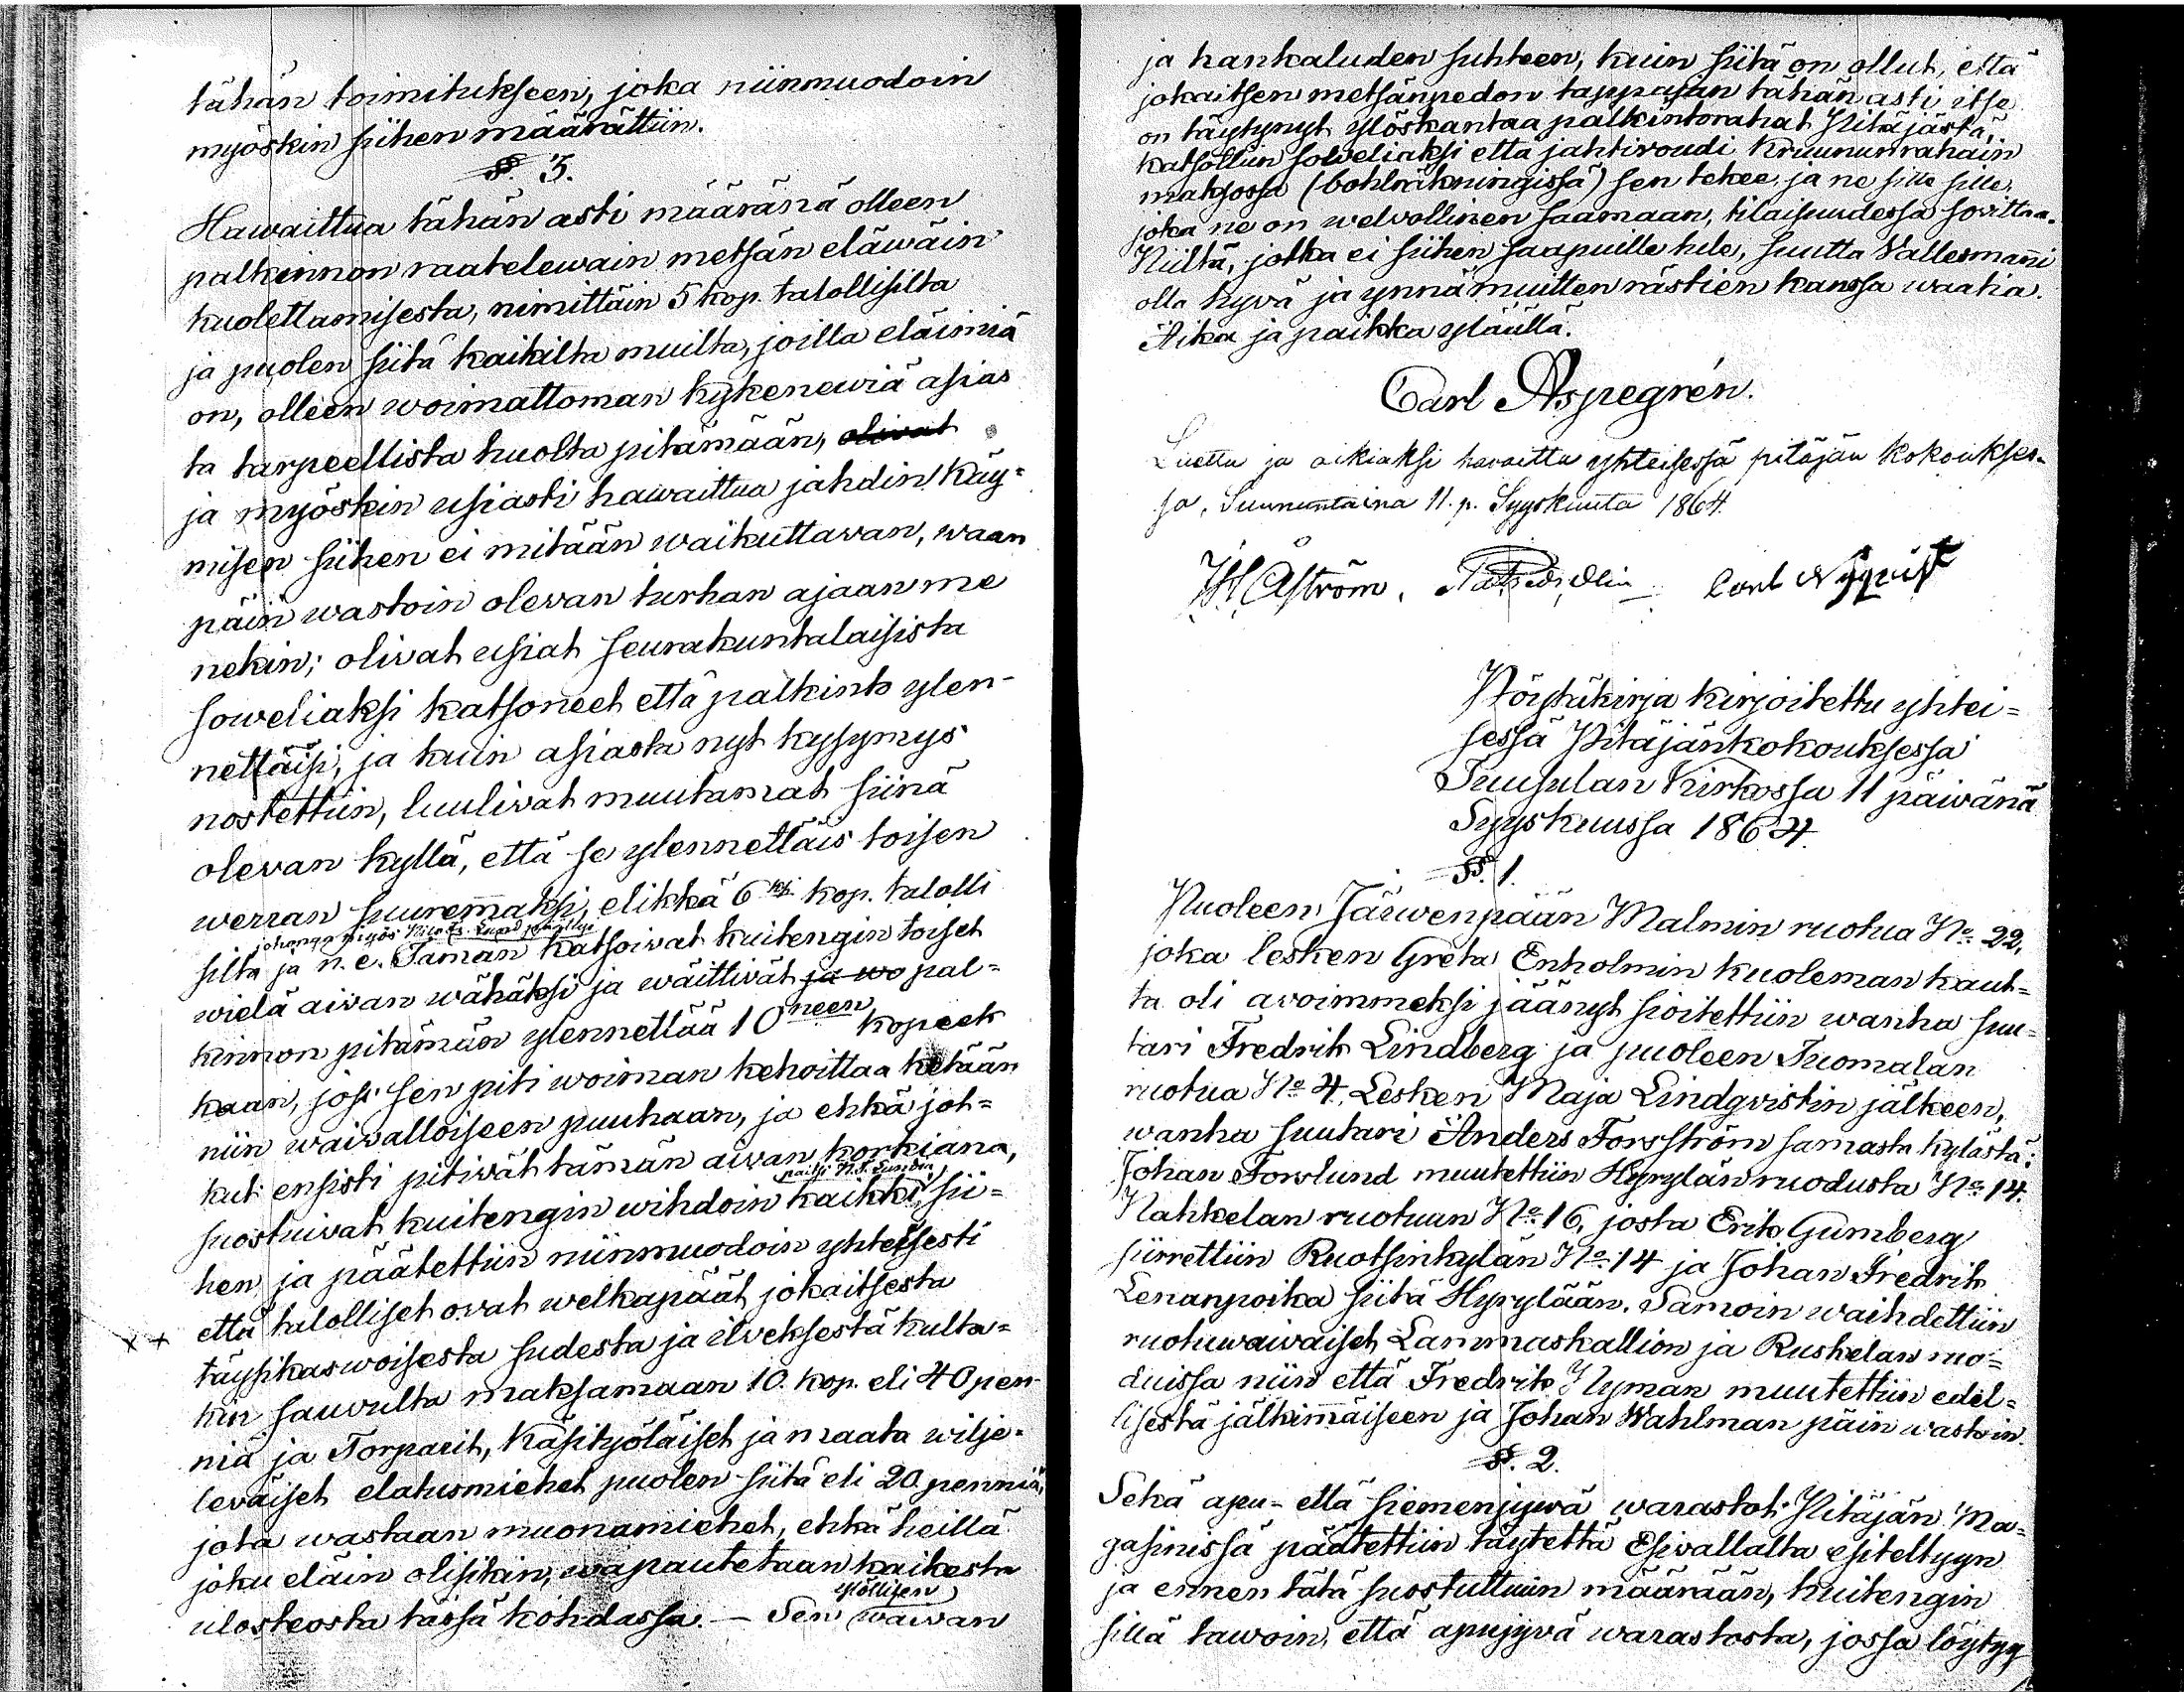 tähän toimitukseen, joka niinmuodoin
myöskin siihen määrättiin.
§. 3.
Hawaittua tähän asti määränä olleen
palkinnon raatelewain metsän eläwäin
kuolettamisesta, nimittäin 5 kop. talollisilta
ja puolen siitä kaikilta muilta, joilla eläimiä
on, olleen woimattoman kykenewiä asias
ta tarpeellista huolta pitämään, olivat
ja myöskin usiasti hawaittua jahdin käy=
misen siihen ei mitään waikuttavan, waan
päin wastoin olevan turhan ajaan me
nekin; olivat usiat seurakuntalaisista
soweliaksi katsoneet että palkinto ylen-
nettäisi, ja kuin asiasta nyt kysymys
nostettiin, luulivat muutamat siinä
olevan kyllä, että se ylennettäis toisen
werran suuremaksi, elikkä 6 ksi kop. talolli
johonga myös
silta ja n. e. Tämän katsoivat kuitengin toiset
wielä aivan wähäksi ja wäittivät ja wo pal=
kinnon pitämän ylennettää 10 neen kopeek
kaan, jos sen piti woiman kehoittaa ketään
niin waivalloiseen puuhaan, ja ehkä jot=
kut ensisti pitivät tämän aivan korkiana,
paitsi
suostuivat kuitengin wihdoin kaikki sii=
hen ja päätettiin niinmuodoin yhteisesti
että talolliset ovat welkapäät jokaitsesta
täysikaswoisesta sudesta ja ilveksestä kulta=
kin sauvulta maksamaan 10. kop. eli 40 pen
niä ja Torparit, Käsityöläiset ja maata wilje=
leväiset elatusmiehet puolen siitä eli 20 penniä,
jota wastaan muonamiehet, ehkä heillä
joku eläin olisikin, wapautetaan kaikesta
ylöllisen
ulosteosta tässä kohdassa. — Sen waivan
ja hankaluden suhteen, kuin siitä on ollut, että
jokaitsen metsänpedon tappajan tähän asti itse
on täytynyt ylöskantaa palkintorahat Pitäjästä,
katsottiin soweliaksi että jahtivoudi Kruununrahain
maksossa (bohlräkningissä) sen tekee, ja ne sille sille,
joka ne on welvollinen saamaan, tilaisuudessa sovittaa.
Niiltä, jotka ei siihen saapuille tule, suutta Vallesmanni
olla hyvä ja ynnä muitten rästien kanssa waatia.
Aika ja paikka yläällä.
Carl Aspegrén.
Luettu ja oikiaksi havaittu yhteisessä pitäjän kokoukses-
sa, Sunnuntaina 11. p. Syyskuuta 1864.
Åström, Carl Nyqvist
Pöytäkirja kirjoitettu yhtei=
sessä Pitäjänkokouksessa
Tuusulan Kirkossa 11 päiwänä
Syyskuussa 1864.
§. 1.
Puoleen Järwenpään Malmin ruotua No 22,
joka lesken Greta Enholmin kuoleman kaut=
ta oli avoimmeksi jäänyt sioitettiin wanha suu=
tari Fredrik Lindberg ja puoleen Tuomalan
ruotua No 4, Lesken Maja Lindqvistin jälkeen,
wanha suutari Anders Forsström samasta kylästä;
Johan Forslund muutettiin Hyrylän ruodusta No 14.
Nahkelan ruotuun No 16, josta Erik Gumberg
siirrettiin Ruotsinkylän No 14 ja Johan Fredrik
Lenanpoika siitä Hyrylään. Samoin waihdettiin
ruotuwaivaiset Lammaskallion ja Ruskelan ruo=
duissa niin että Fredrik Nyman muutettiin edel=
lisestä jälkimäiseen ja Johan Wahlman päin wastoin.
§. 2.
Sekä apu- että siemenjywä warastot Pitäjän Ma=
gasinissa päätettiin täytettä Esivallalta esiteltyyn
ja ennen tätä suostuttuin määrään, kuitengin
sillä tawoin, että apujyvä warastosta, jossa löytyy